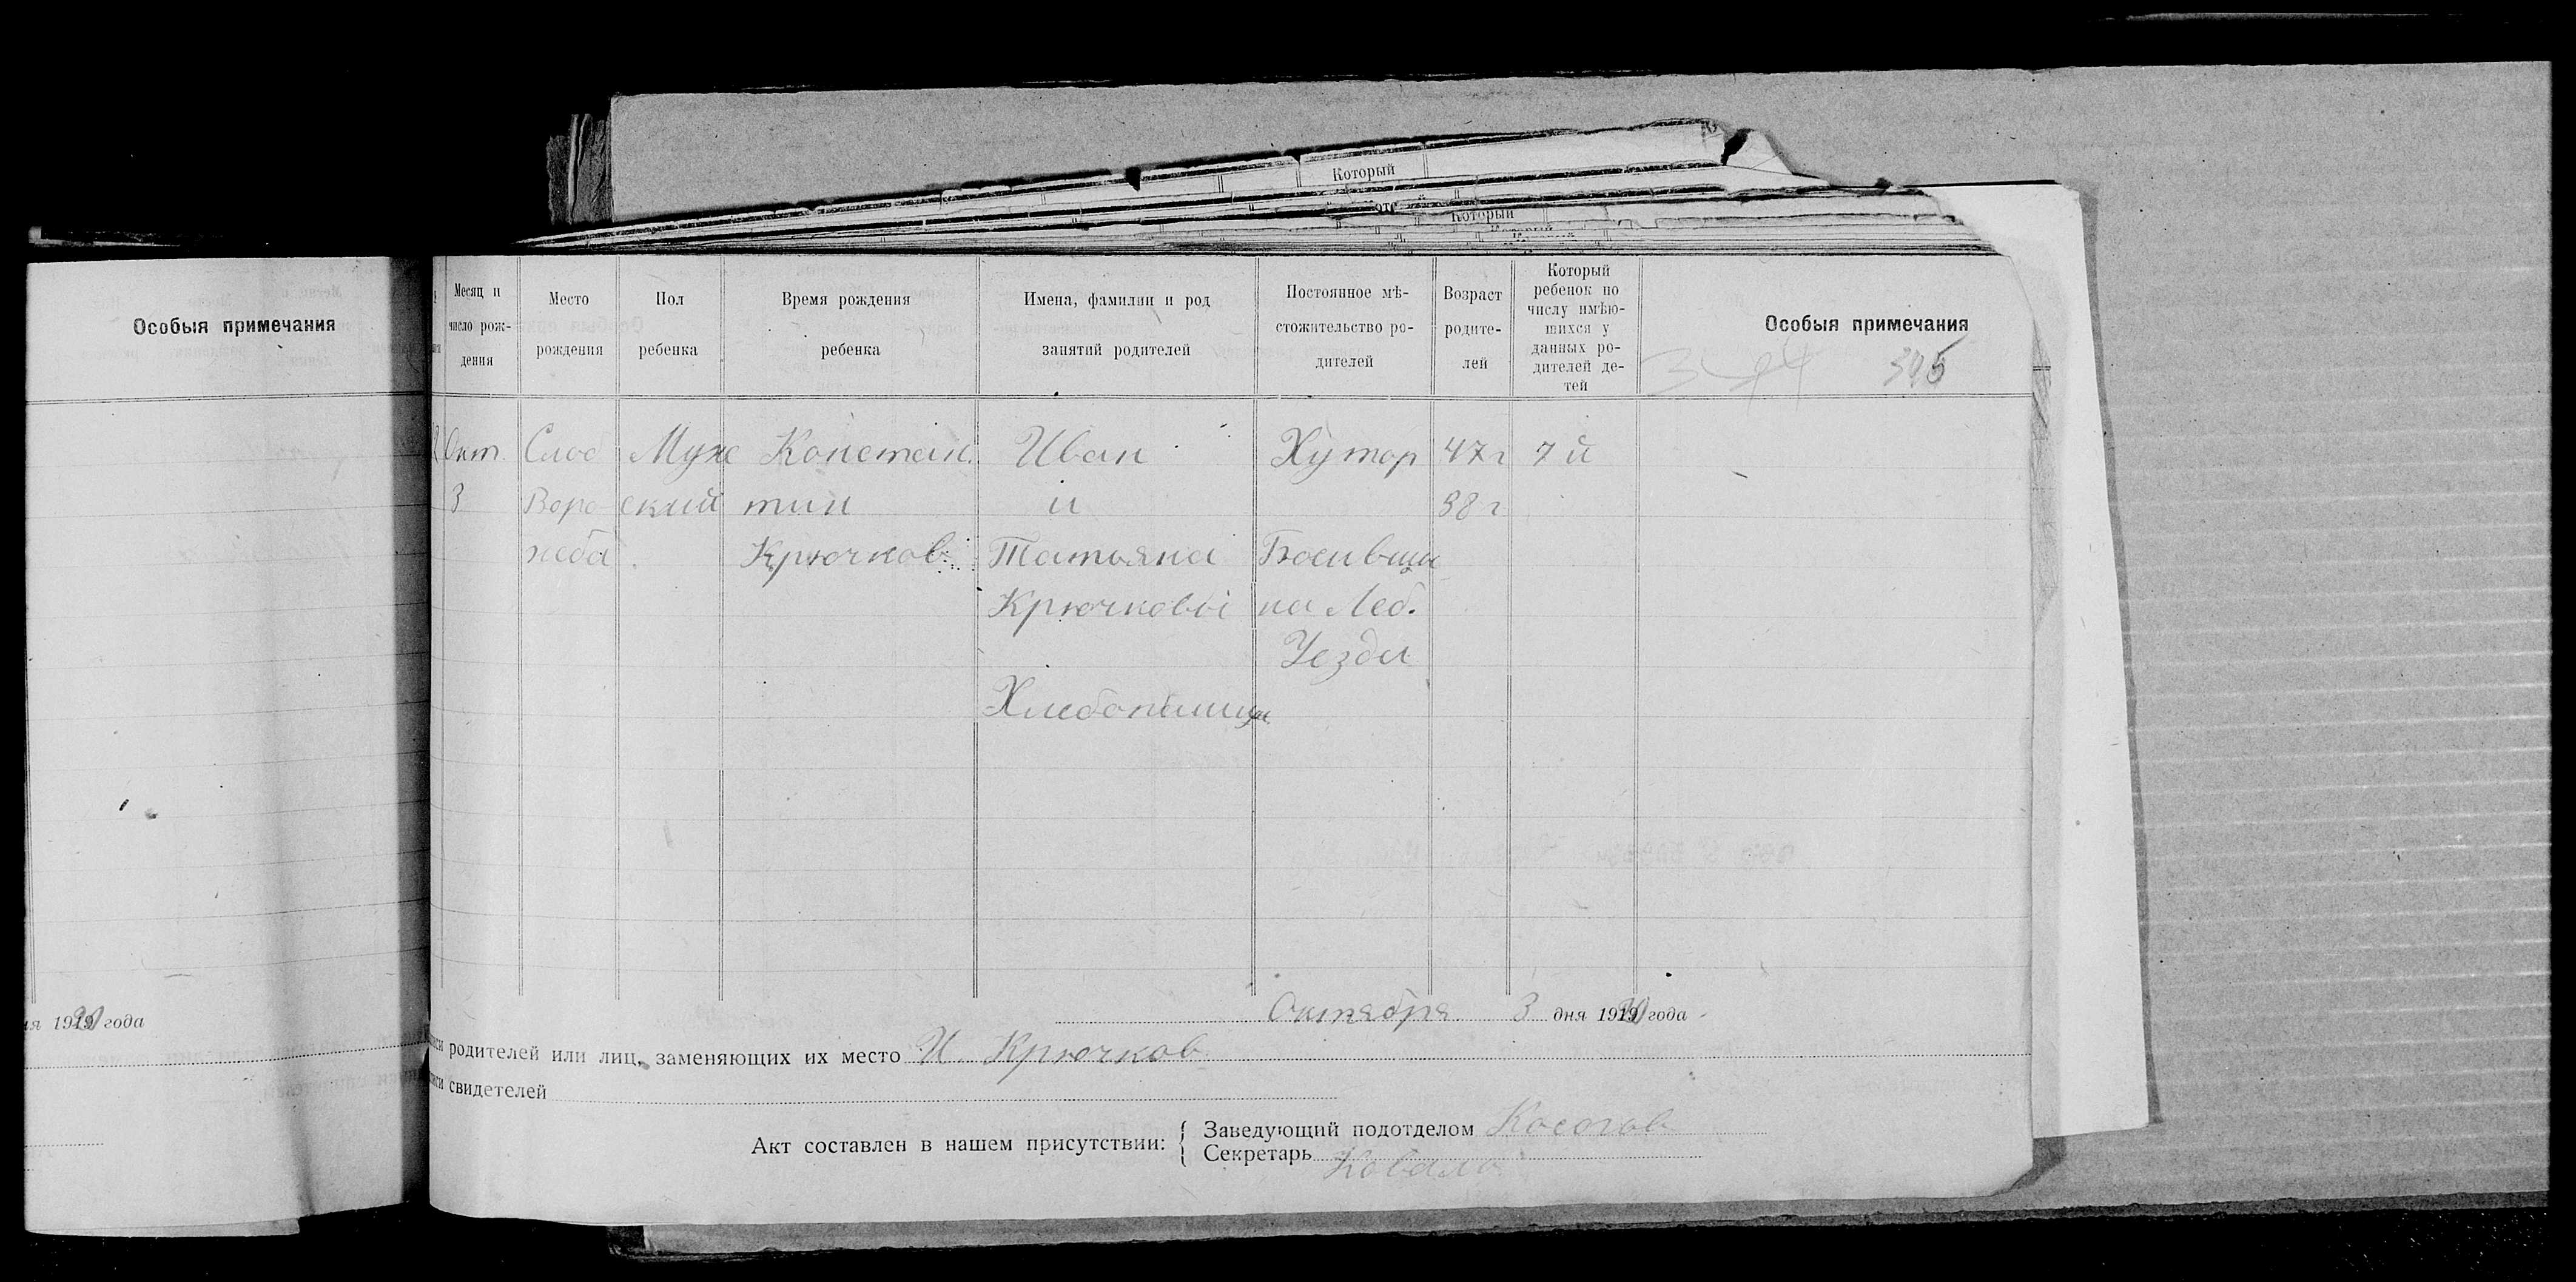 Который
Который
Особыя примечания
Месяц и число рождения
Место рождения
Пол ребенка
Время рождения ребенка
Имена, фамилии и род занятий родителей
Постоянное мѣстожительство родителей
Возраст родителей
Который ребенок по числу имѣющихся у данных родителей детей
Особыя примечания
395
Окт. Слоб Муже Констан Иван Хутор 47 г 7 й
3 Воро ский тин и 38 г
жба Крючков Татьяна
Крючковы на Леб.
Уезда
Хлебопашцы
Октября 3 дня 1920 года
ня 1920 года
родителей или лиц, заменяющих их место И. Крючков
свидетелей
Акт составлен в нашем присутствии:
Заведующий подотделом
Секретарь